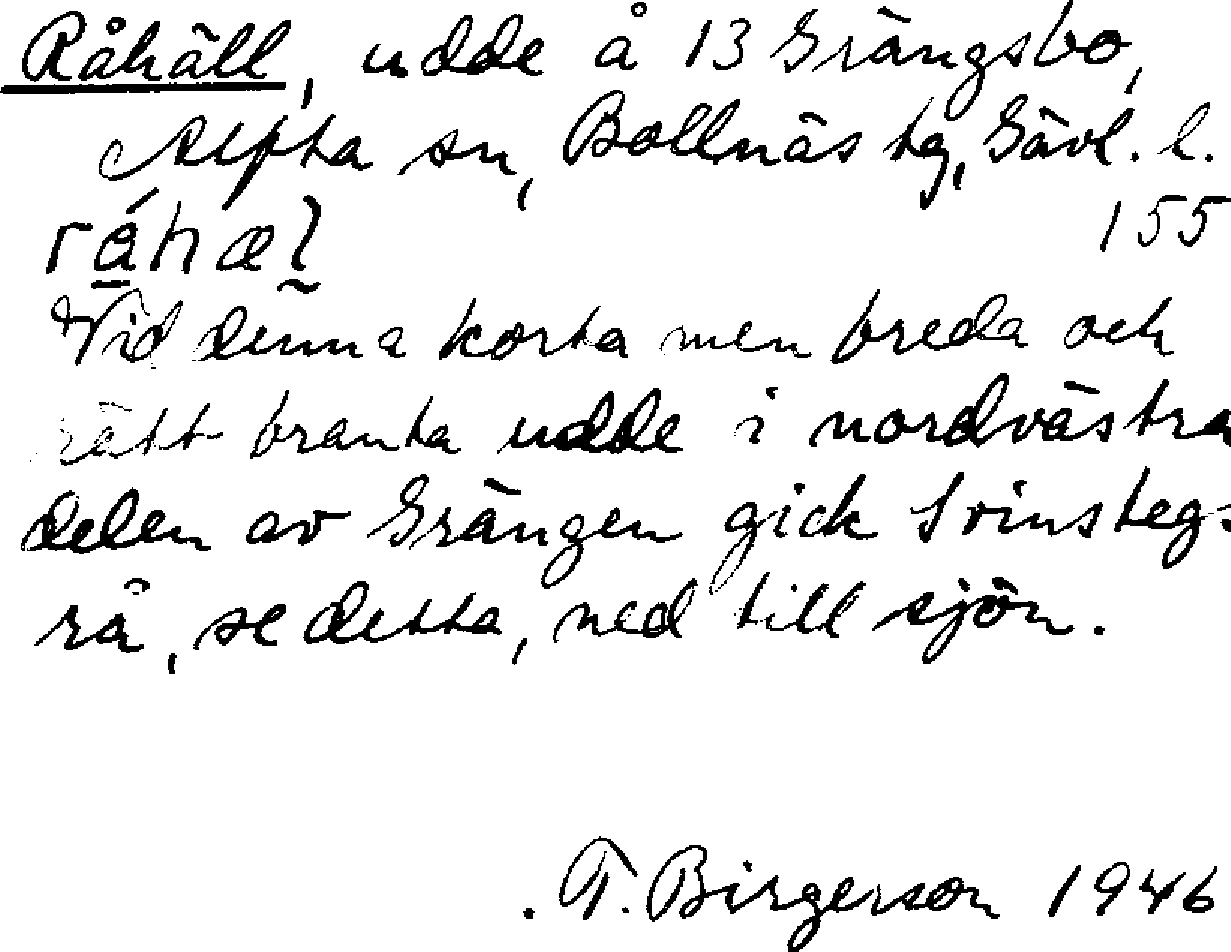 Råhäll, udde å 13 Grängsbo,
Alfta sn, Bollnäs tg, Gävl. l.
155
Vid denna korta men breda och
rätt branta udde i nordvästra
delen av Grängen gick Svinsteg-
rå, se detta, ned till sjön.
T. Birgerson 1946